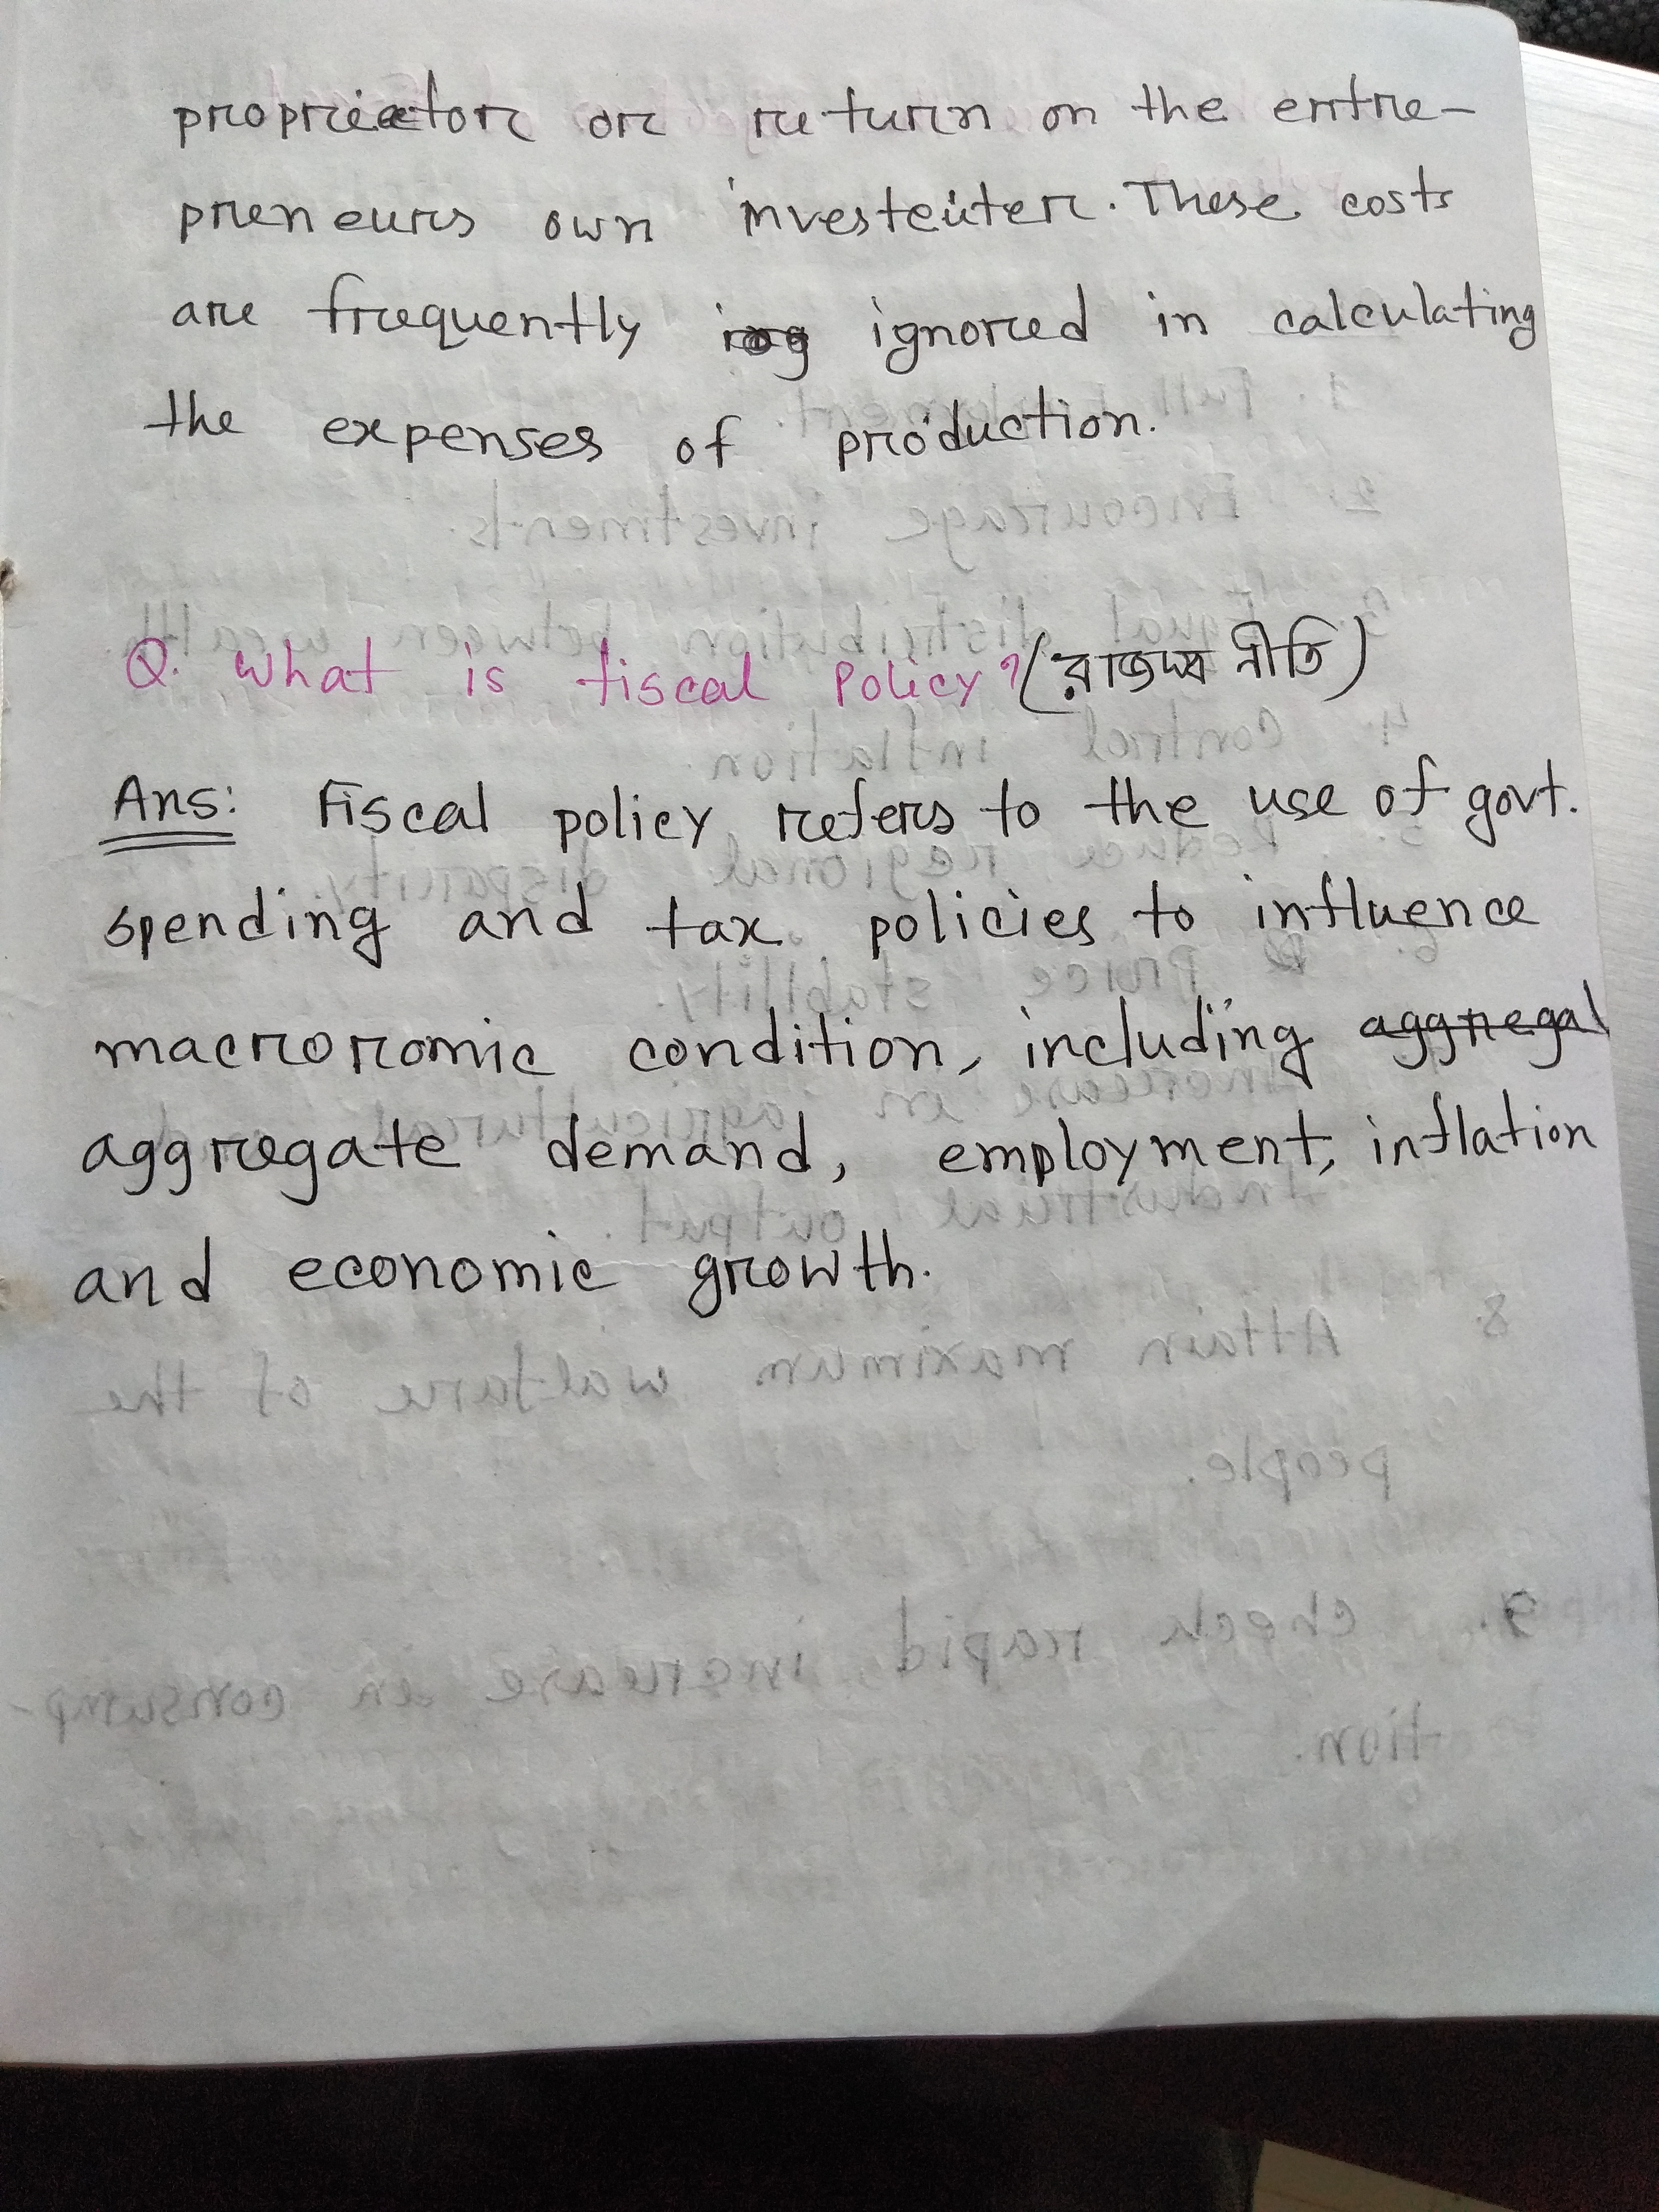 proprietor or return on the entre-
preneurs own investeiter. These costs
are frequently ignored in calculating
the expenses of production.
Q. What is fiscal Policy? (রাজস্ব নীতি)
Ans: Fiscal policy refers to the use of govt.
spending and tax policies to influence
macroromic condition, including aggregal
aggregate demand, employment, inflation
and economic growth.